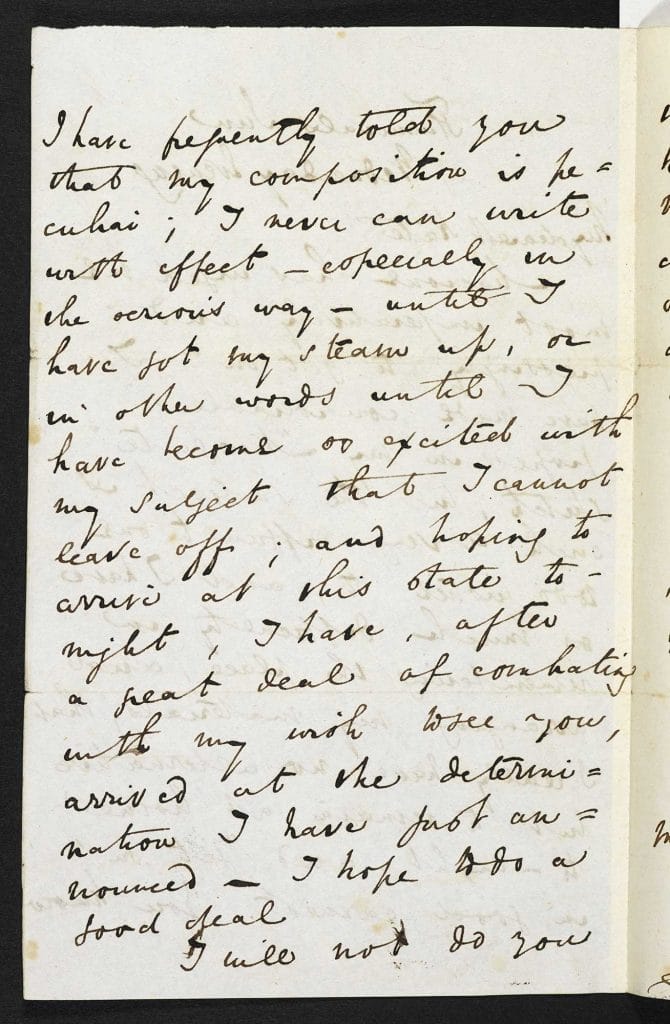 I have frequently told you
that my composition is pe=
culiar; I never can write
with effect – especially in
the serious way – until I
have got my steam up, or
in other words until I
have become so excited with
my subject that I cannot
leave off; and hoping to
arrive at this state to-
night, I have, after
a great deal of combating
with my wish to see you,
arrived at the determi=
nation I have just an=
nounced – I hope to do a
good deal
I will not do you